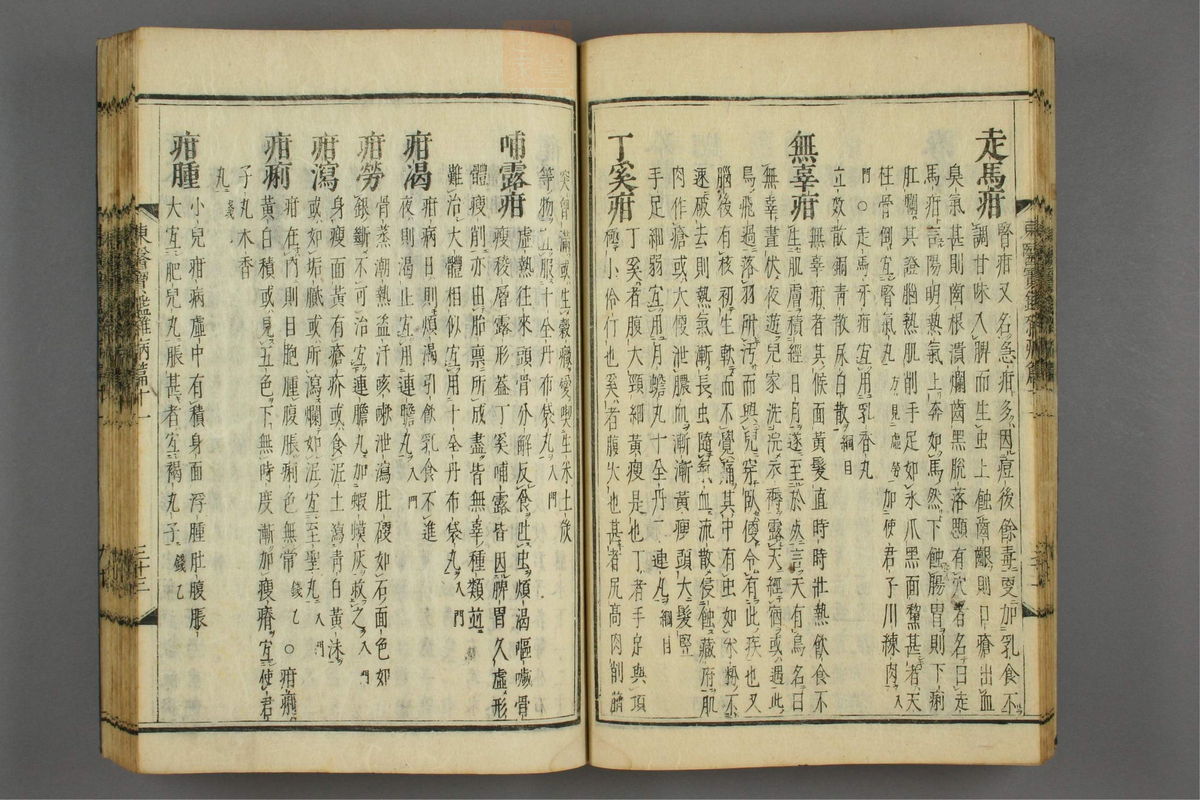 走馬疳 腎疳又名急疳多因痘後餘毒更加乳食不
調甘味入脾而生虫上蝕齒齦則口瘡出血
臭氣甚則齒根潰爛齒黑脫落顋有穴者名曰走
馬疳言陽明熱氣上奔如馬然下蝕腸胃則下痢
肛爛其證腦熱肌削手足如氷爪黑面黧甚者天
柱骨倒宜腎氣丸 方見虛勞 加使君子川練肉 入
門 ○走馬牙疳宜用乳香丸
立效散 爾青散 尿白散 綱目
無辜疳 無辜疳者其候面黃髮直時時壯熱飲食不
生肌膚積經日月遂至於死言天有鳥名曰
無辜晝伏夜遊兒家洗浣衣褥露天經宿或遇此
鳥飛過落羽所汚而與兒穿臥便令有此疾也又
腦後有核初生軟而不覺痛其中有虫如米粉不
速破去則熱氣漸長虫隨熱血流散侵蝕藏府肌
肉作瘡或大便泄膿血漸漸黃瘦頭大髮竪
手足細弱宜用月蟾丸 十全丹 二連丸 綱目
丁奚疳 丁奚者腹大頸細黃瘦是也丁者手足與項
極小伶仃也奚者腹大也甚者尻高肉削臍
突胷滿或生穀癥愛喫生米土炭
等物宜服十全丹 布袋丸 入門
哺露疳 虛熱往來頭骨分解反食吐虫煩渴嘔噦骨
體瘦稜層露形盖丁奚哺露皆因脾胃久虛形
體瘦削亦由胎禀所成盡皆無辜種類並
難治大體相似宜用十全丹 布袋丸 入門
疳渴 疳病日則煩渴引飮乳食不進
夜則渴止宜用連膽丸 入門
疳勞 骨蒸潮熱盜汗咳嗽泄瀉肚硬如石面色如
銀斷不可治宜連膽丸加蝦蟆灰救之 入門
疳瀉 身瘦面黃有瘡疥或食泥土瀉靑白黃沫
或如垢膩或所瀉爛如泥宜至聖丸 入門
疳痢 疳在內則目胞腫腹脹痢色無常 錢乙 ○疳痢
黃白積或見五色下無時度漸加瘦瘠宜使君
子丸 木香
丸 錢
疳腫 小兒疳病虛中有積身面浮腫肚腹脹
大宜肥兒丸脹甚者宜褐丸子 錢乙
東醫寶鑑雜病篇十一 三十三